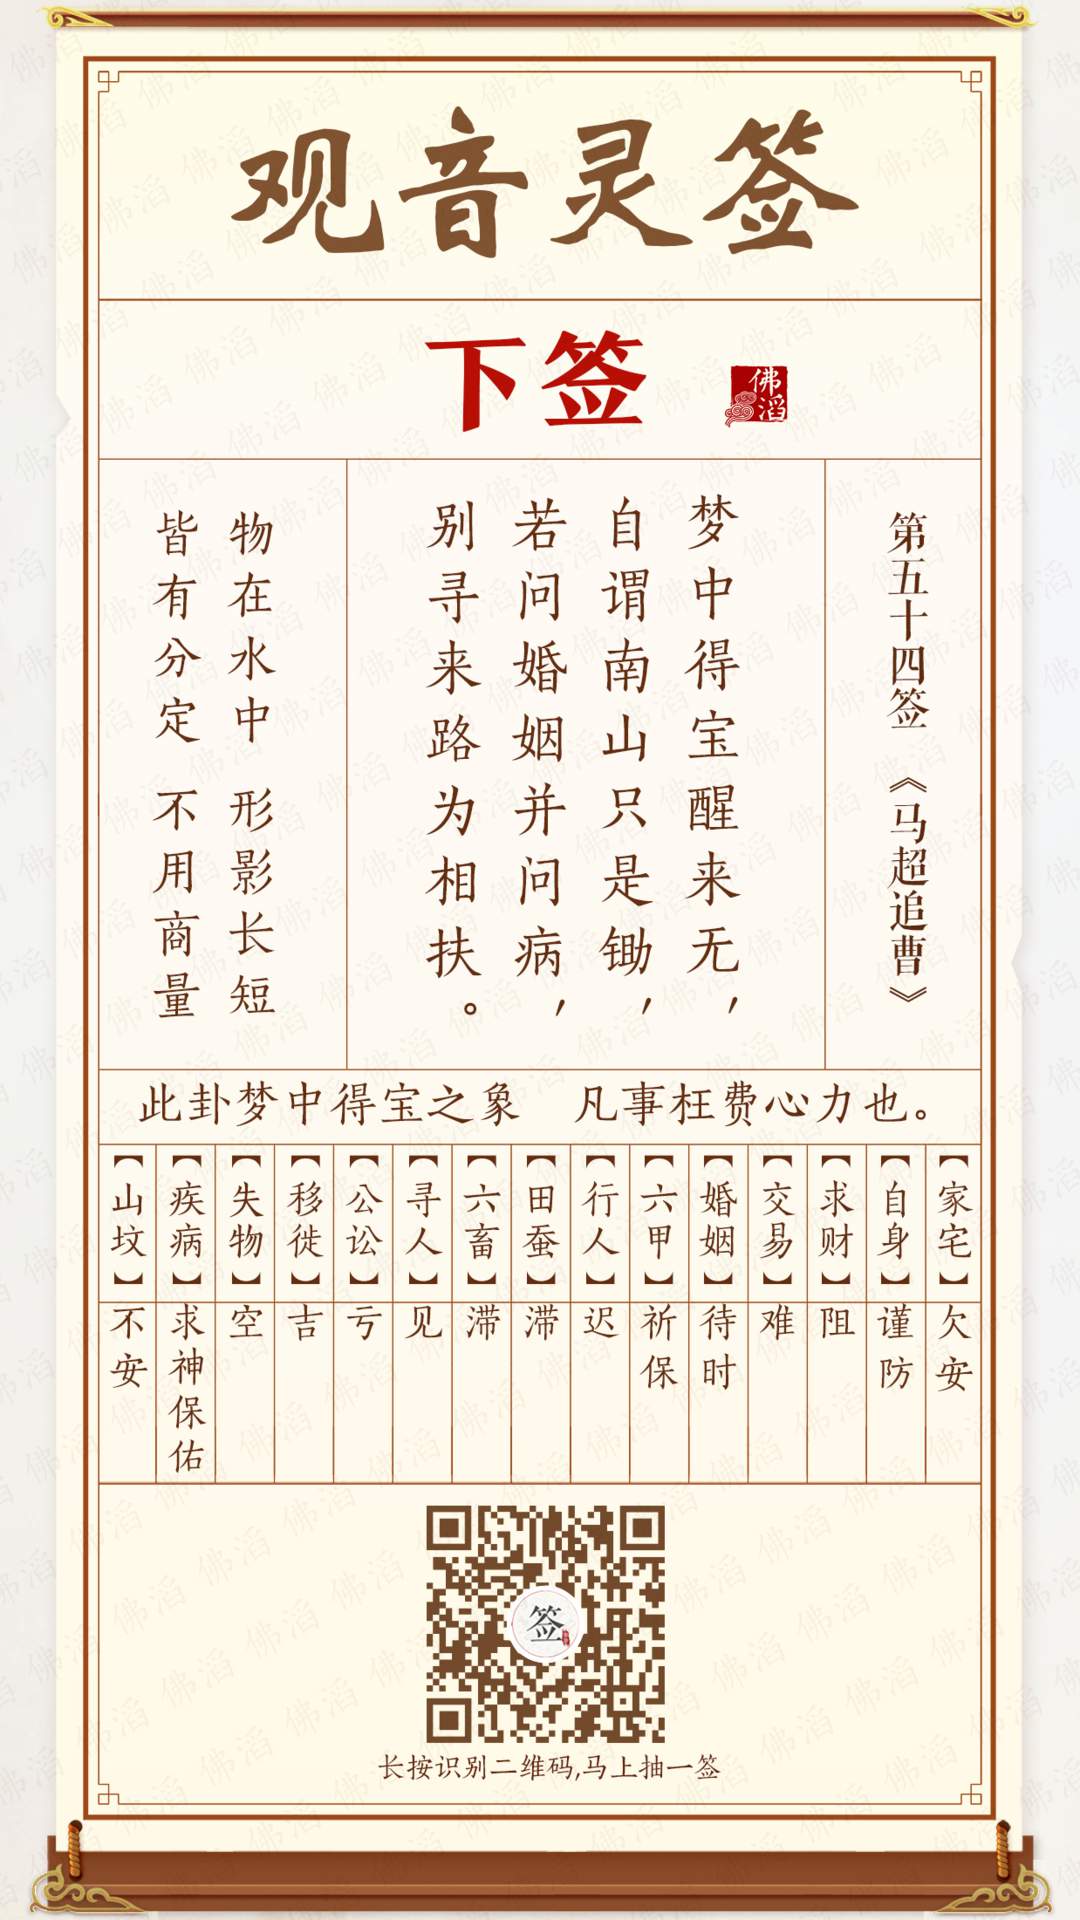 观音灵签
下签
佛滔
第五十四签 《马超追曹》
梦中得宝醒来无，
自谓南山只是锄，
若问婚姻并问病，
别寻来路为相扶。
物在水中 形影长短
皆有分定 不用商量
此卦梦中得宝之象 凡事枉费心力也。
【家宅】欠安
【自身】谨防
【求财】阻
【交易】难
【婚姻】待时
【六甲】祈保
【行人】迟
【田蚕】滞
【六畜】滞
【寻人】见
【公讼】亏
【移徙】吉
【失物】空
【疾病】求神保佑
【山坟】不安
签
长按识别二维码,马上抽一签